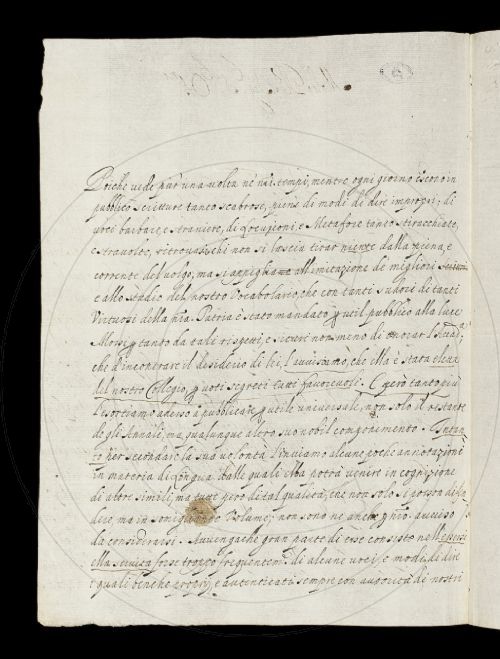 Poiche vede pur una volta ne' nři tempi, mentre ogni giorno escono in
pubblico scritture tanto scabrose, piene di modi di dire improprj; di
voci barbare, e straniere, di locuzioni, e Metafore tanto stiracchiate,
e stravolte, ritrovasi chi non si lascia tirar niente dalla piena, e
corrente del volgo, ma si appiglia all'imitazione de' migliori
e allo studio del nostro Vocabolario, che con tanti sudori di tanti
Virtuosi della nřa Patria è stato mandato p util pubblico alla luce
Mossi p tanto da tali rispetti, e sicuri non meno di
d'incontrare il desiderio di lei, l'avvisiamo, che ella è stata eletta
del nostro Collegio, p voti segreti tutti favorevoli. E però tanto più
l'esortiamo a pubblicare p utile universale, non solo il restante
degli Annali, ma qualunque altro suo nobil componimento. Intan
to per secondare la sua volontà l'inviamo alcune poche annotazioni
in materia di Lingua, dalle quali Ella potrà venire in cognizione
di altre simili, ma tutte però di tal qualità, che non solo si possa
dere, ma in Volume; non sono ne anche p nřo avviso
da considerarsi. Avvengache gran parte di esse consiste nell'essersi
Ella servita forse troppo frequentem. di alcune voci, e modi di dire
i quali benche proprj, e autenticati sempre con autorità di nostri